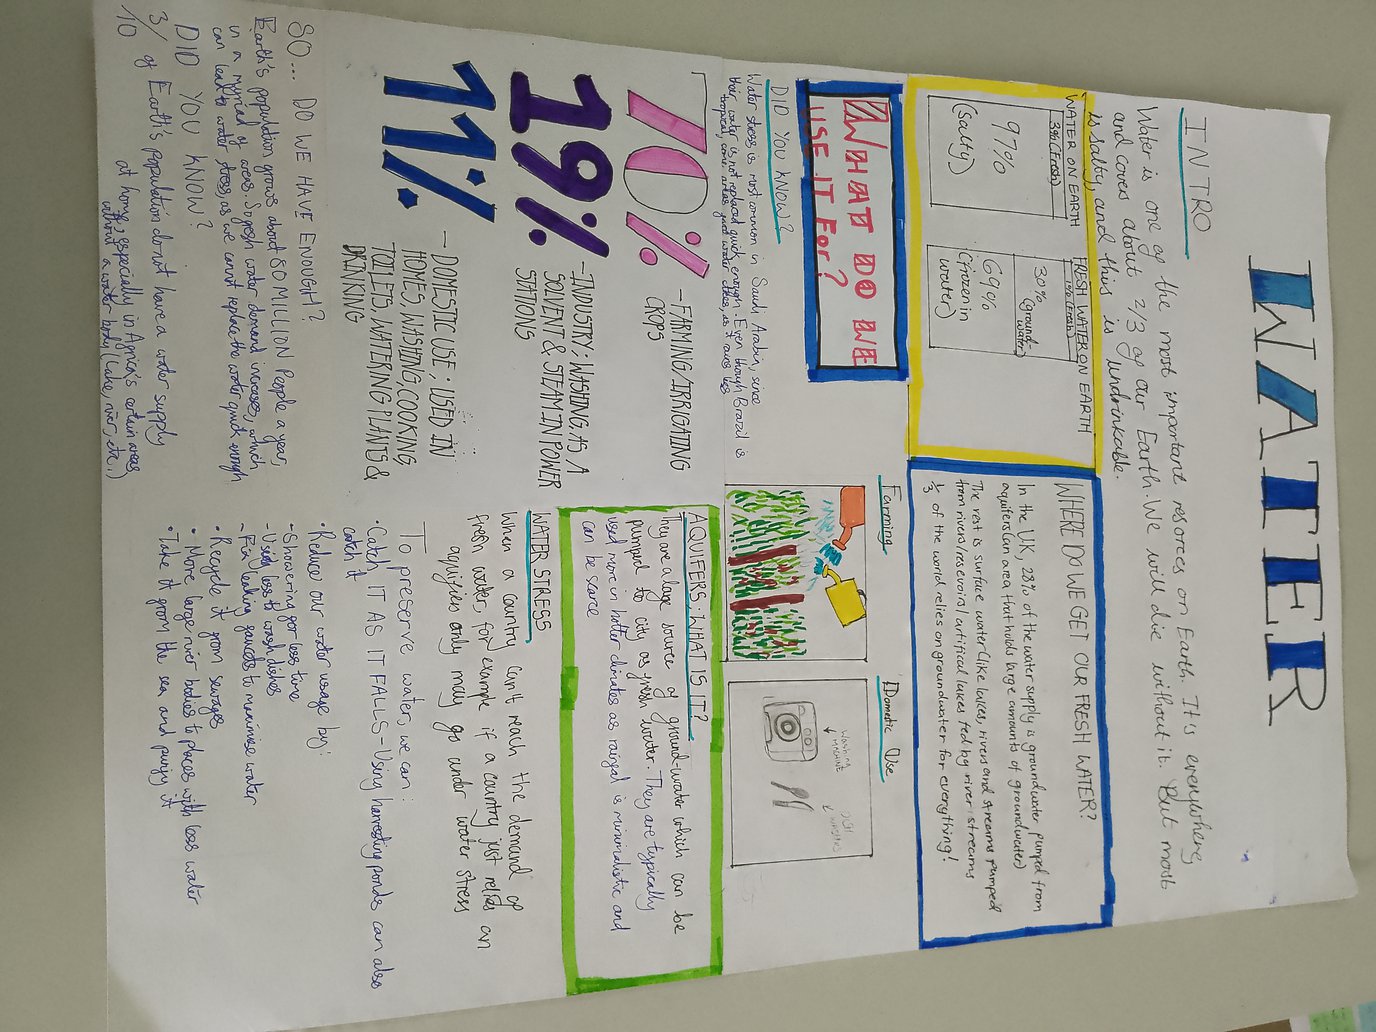 WATER
INTRO
Water is one of the most important resorces on Earth. It's everywhere,
and covers about 2/3 of our Earth. We will die without it. But most
is salty, and this is undrinkable.
WATER ON EARTH
3% (Fresh)
97%
(salty)
FRESH WATER ON EARTH
1% (Fresh)
30%
(ground-
water)
69%
(frozen in
water)
WHERE DO WE GET OUR FRESH WATER?
In the UK, 28% of the water supply is groundwater pumped from
aquifers (an area that holds large amounts of groundwater)
The rest is surface water like lakes, rivers and streams pumped
from rivers/reservoirs artifical lakes fed by river streams
1/3 of the world relies on groundwater for everything!
WHAT DO WE
USE IT FOR?
DID YOU KNOW?
Water stress is most common in Saudi Arabia, since
their water is not replaced quick enough. Even though Brazil is
tropical, some areas need water as it
Farming
Domestic Use
WASHING
MACHINE
DISH
WASHING
70%
- FARMING, IRRIGATING
CROPS
19%
- INDUSTRY: WASHING, AS A
SOLVENT & STEAM IN POWER
STATIONS
11%
- DOMESTIC USE: USED IN
HOMES, WASHING, COOKING
TOILETS, WATERING PLANTS &
DRINKING
AQUIFERS, WHAT IS IT?
They are a large source of ground-water which can be
pumped to city as fresh water. They are typically
used more in hotter climates as rainfal is minimalistic and
can be scarce
WATER STRESS
When a country can't reach the demand of
fresh water, for example if a country just relies on
aquifers only may go under water stress
To preserve water, we can:
• Catch IT AS IT FALLS - Using harvesting ponds can also
catch it
• Reduce our water usage by:
- Showering for less time
- Used less to wash dishes
- Fix leaking faucets to maximise water
• Recycle it from sewages
• More large river bodies to places with less water
• Take it from the sea and purify it
SO... DO WE HAVE ENOUGH?
Earth's population grows about 80 MILLION People a year,
in a myriad of areas. So fresh water demand increases, which
can lead to water stress, as we cannot replace the water quick enough
DID YOU KNOW?
3/10 of Earth's population do not have a water supply
at home, especially in Africa's certain areas
without a water body (Lake, river, etc..)